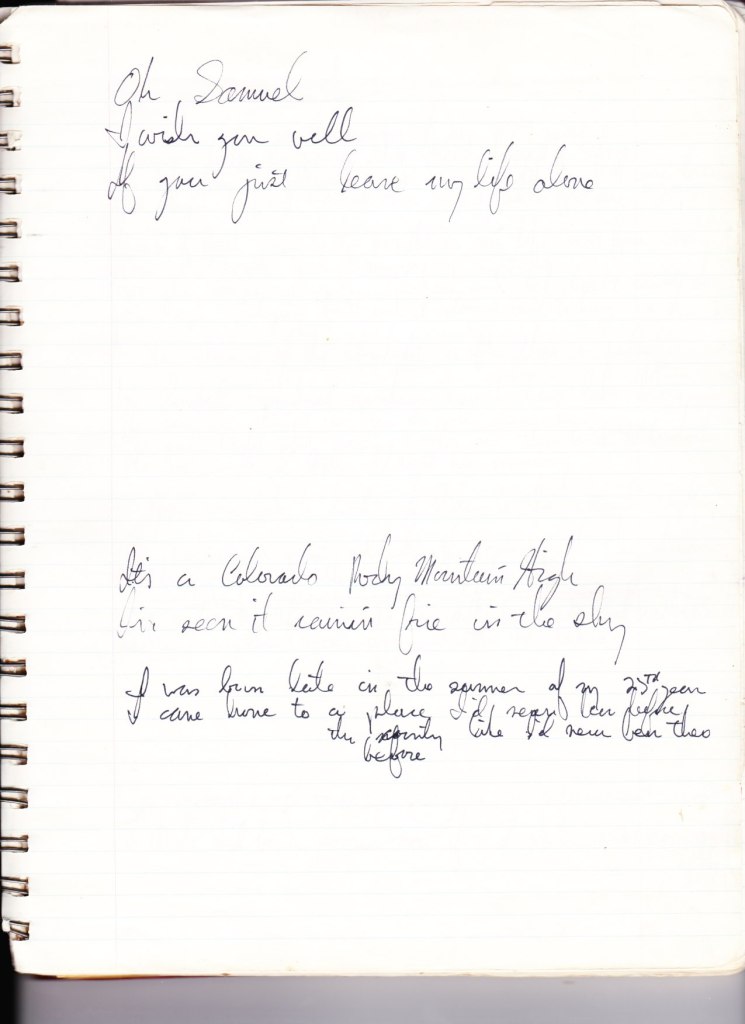 Oh, Samuel
I wish you well
If you just leave my life alone
It's a Colorado Rocky Mountain High
I've seen it rainin fire in the sky
I was born late in the summer of my 25TH year
I came home to a place I'd never been before
the like I'd never been there
before